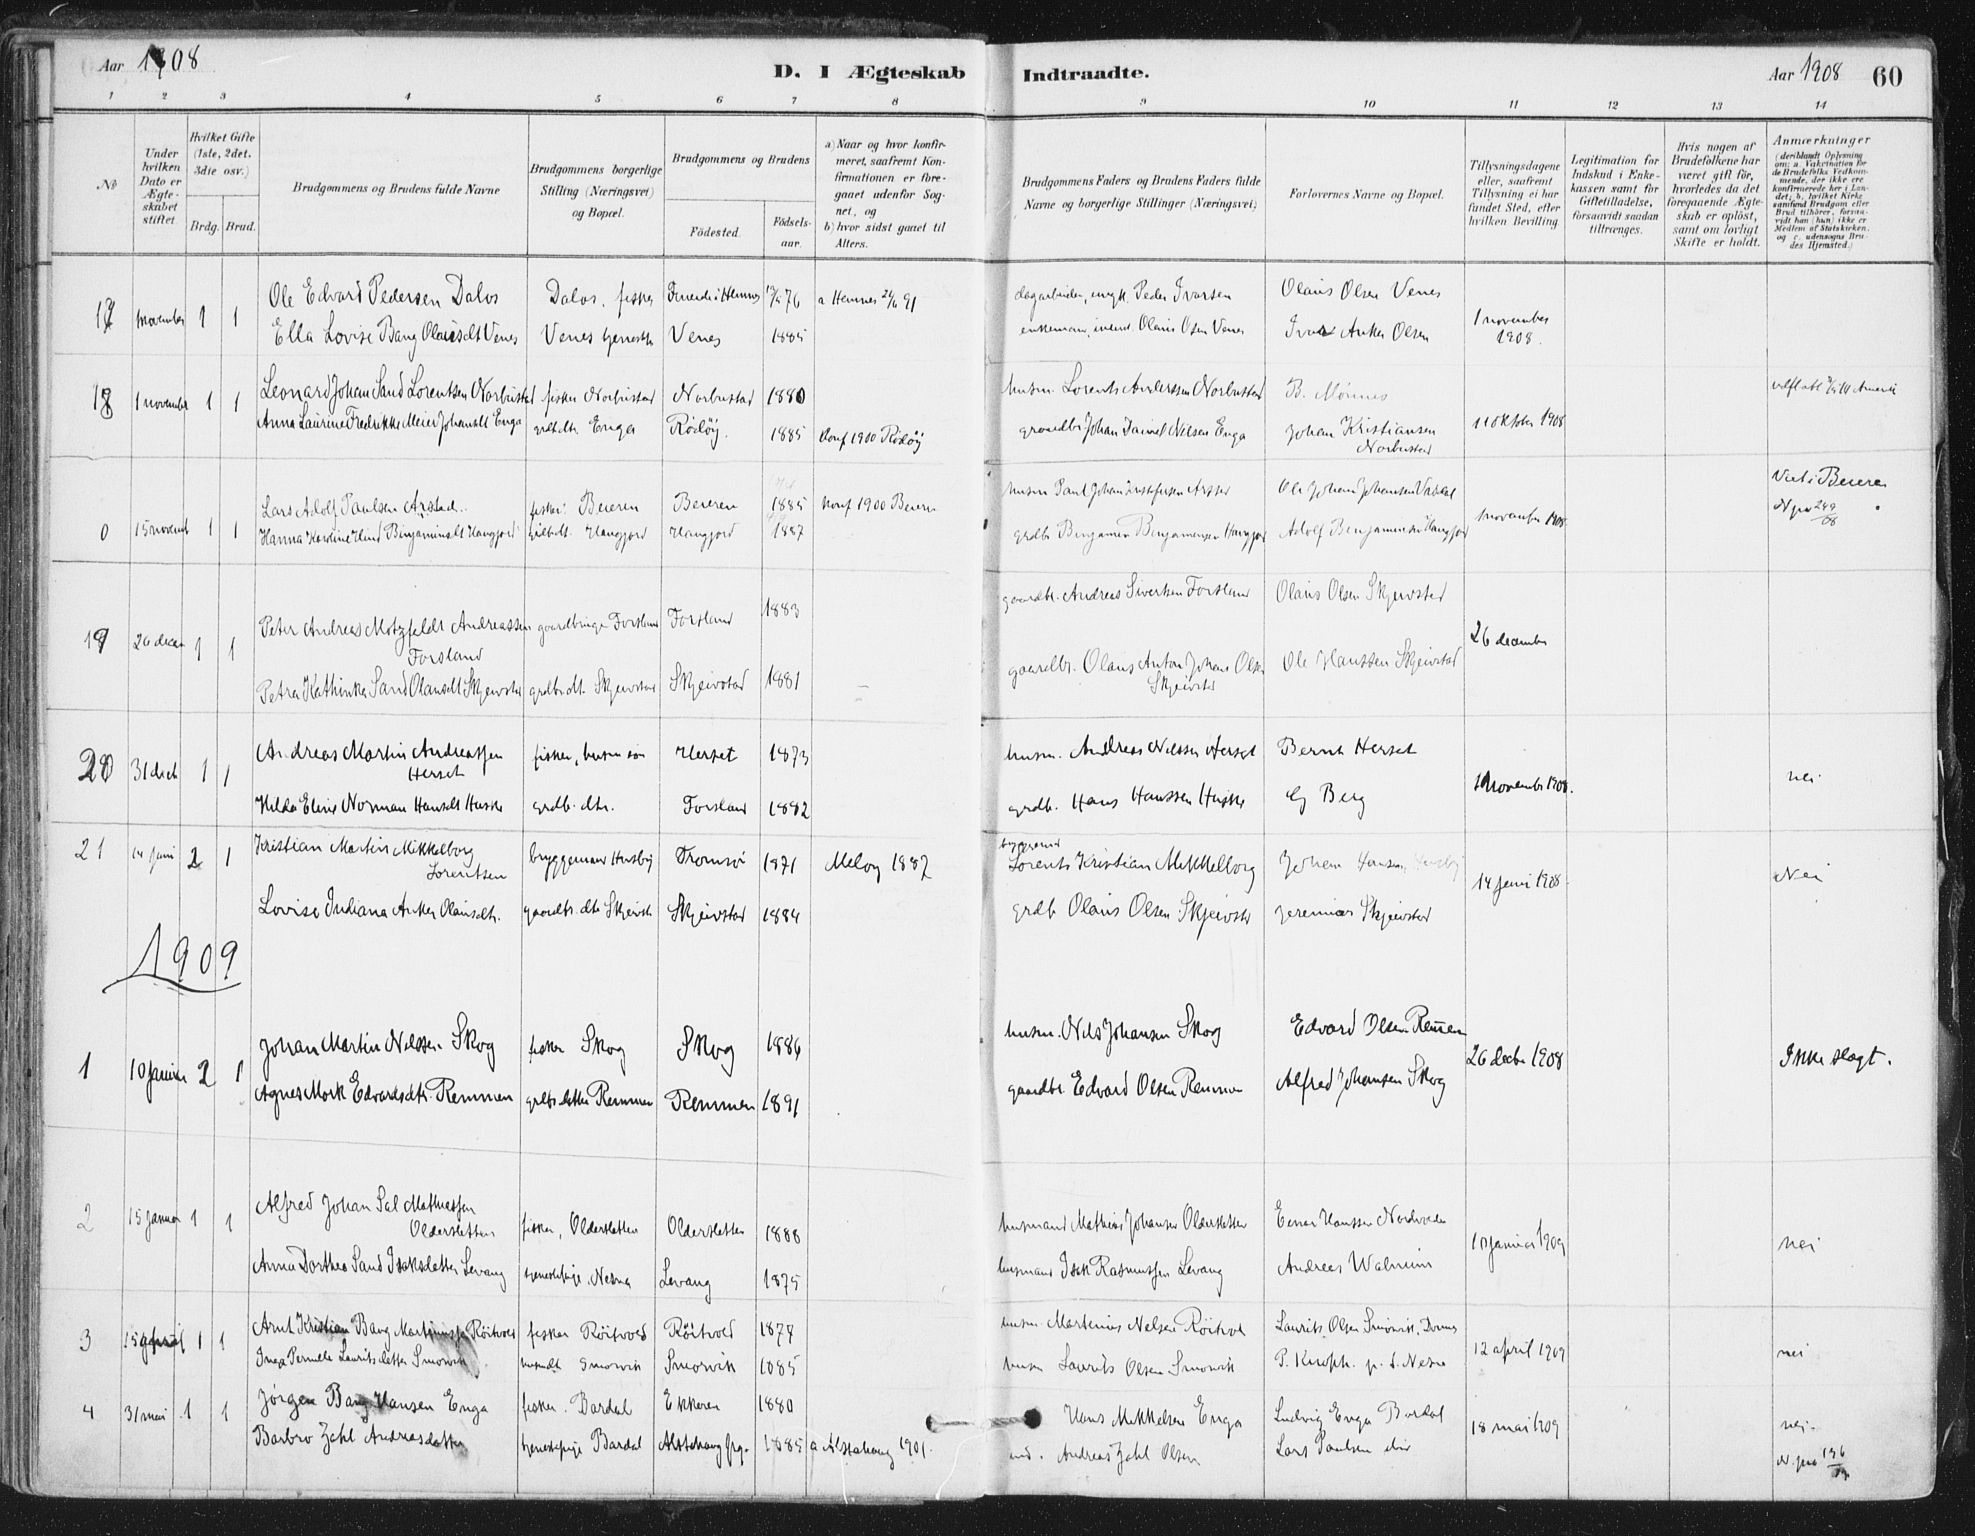 Aar 1908
D. I Ægteskab
Indtraadte.
Aar 1908 60
1 2 3 4 5 6 7 8 9 10 11 12 13 14
No
Under hvilken Dato er Ægteskabet stiftet.
Hvilket Gifte (1ste, 2det, 3die osv.)
Brdg. Brud.
Brudgommens og Brudens fulde Navne
Brudgommens borgerlige Stilling (Næringsvei) og Bopæl.
Brudgommens og Brudens
Fødested.
Fødselsaar.
a) Naar og hvor konfirmeret, saafremt Konfirmationen er foregaaet udenfor Sognet, og
b) hvor sidst gaaet til Alters.
Brudgommens Faders og Brudens Faders fulde Navne og borgerlige Stillinger (Næringsvei)
Forlovernes Navne og Bopæl.
Tillysningsdagene eller, saafremt Tillysning ei har fundet Sted, efter hvilken Bevilling
Legitimation for Indskud i Enkekassen samt for Giftetilladelse, forsaavidt saadan tiltrænges.
Hvis nogen af Brudefolkene har været gift før, hvorledes da det foregaaende Ægteskab er opløst, samt om lovligt Skifte er holdt.
Anmærkninger
(deriblandt Oplysning om: a. Vakcination for de Brudefolks Vedkommende, der ikke ere konfirmerede her i Landet; b. hvilket Kirkesamfund Brudgom eller Brud tilhører, forsaavidt han (hun) ikke er Medlem af Statskirken, og c. udensogns Brudes Hjemsted.)
17 november 1 1 Ole Edvard Pedersen Dalos Dalos, fisker Hemnes 76 a Hemnes 91 dagarbeider, Peder Ivarsen Olaus Olsen Venes 1 november 1908.
Ella Lovise Bang Olausdt Venes Venes Venes 1885 enkemand, Olaus Olsen Venes Ivar Anker Olsen
18 1 november 1 1 Leonard Johan Sand Lorentsen Norbustad fisker Norbustad Norbustad 1880 husm. Lorents Anderssen Norbustad B. Mönnes 11 oktober 1908
Anna Laurine Fredrikke Meier Johansdt Enga grdbdtr Enga Rödöy. 1885 Konf 1900 Rödöy gaardbr Johan Daniel Nilsen Enga Johan Kristiansen Norbustad
0 15 novemb 1 1 Lars Adolf Paulsen Arstad fisker Beieren Beieren 1885 Konf 1900 Beieren husm Paul Johan Arstad Ole Johan Johansen 1 november 1908 Viet i Beieren
Hanna Kardine Benjaminsdt Haugfjord Haugfjord Haugfjord 1887 grdbr Benjamin Benjaminsen Haugfjord Adolf Benjaminsen Haugfjord N pro 249/08
19 26 decem 1 1 Peter Andreas Motzfeldt Andreassen Forsland gaardbruger Forsland Forsland 1883 gaardbr. Andreas Sivertsen Forsland Olaus Olsen Skjeivstad 26 december
Petra Kathinka Sand Olausdt Skjeivstad grdbr.dtr. Skjeivstad Skjeivstad 1881 gaardbr. Olaus Anton Johan Olsen Skjeivstad Ole Hanssen Skjeivstad
20 31 decb 1 1 Andreas Martin Andreassen Herset fisker, husm søn Herset 1873 husm. Andreas Nilssen Herset Bernt Herset 1 november 1908. nei
Hilda Eline Norman Hansdt grdb. dtr. Forsland 1882 grdb. Hans Hanssen G Berg
21 14 juni 2 1 Kristian Martin Mikkelborg Lorentsen bryggemand Husby Tromsö 1871 Meloy 1887 Lorents Kristian Mikkelborg Johan Hansen, Husby 14 juni 1908. Nei
Lovise Indiana Anker Olausdtr. gaardbr. dtr Skjeivstad Skjeivstad 1884 grdb. Olaus Olsen Skjeivstad Jeremias Skjeivstad
1909
1 10 januar 2 1 Johan Martin Nilssen Skog fisker Skog Skog 1886 husm. Nils Johansen Skog Edvard Olsen Remmen 26 decbr 1908 Ikke slægt.
Agnes Mork Edvardsdtr. Remmen grdbr datter Remmen Remmen 1891 gaardbr Edvard Olsen Remmen Alfred Johansen Skog
2 15 januar 1 1 Alfred Johan Sal Mathiassen Oldersletten fisker, Oldersletten Oldersletten 1888 husmand Mathias Johansen Oldersletten Einar Hanssen 10 januar 1909 nei
Anna Dorthea Sand Isaksdatter Levang tjenestepige, Nesna Levang 1875 husmand Isak Rasmussen Levang Andreas Walnum
3 15 april 1 1 Arnt Kristian Bang Martinussen Röitvold fisker Röitvold Röitvold 1879 husm. Martinus Nelsen Röitvold Laurits Olsen Smorvik, Donnes 12 april 1909 nei
Inga Pernelle Lauritsdatter Smorvik Smorvik Smorvik 1885 husm Laurits Olsen Smorvik P. Knoph. p. t. Nesna
4 31 mai 1 1 Jørgen Bang Hansen Enga fisker. Bardal Ekkeren 1880 Hans Mikkelsen Enga Ludvig Enga Bardal 18 mai 1909 nei.
Barbro Zahl Andreasdatter tjenestepige Bardal Alstahaug 1885 a Alstahaug 1901. Andreas Zahl Olsen Lars Paulsen N. pro